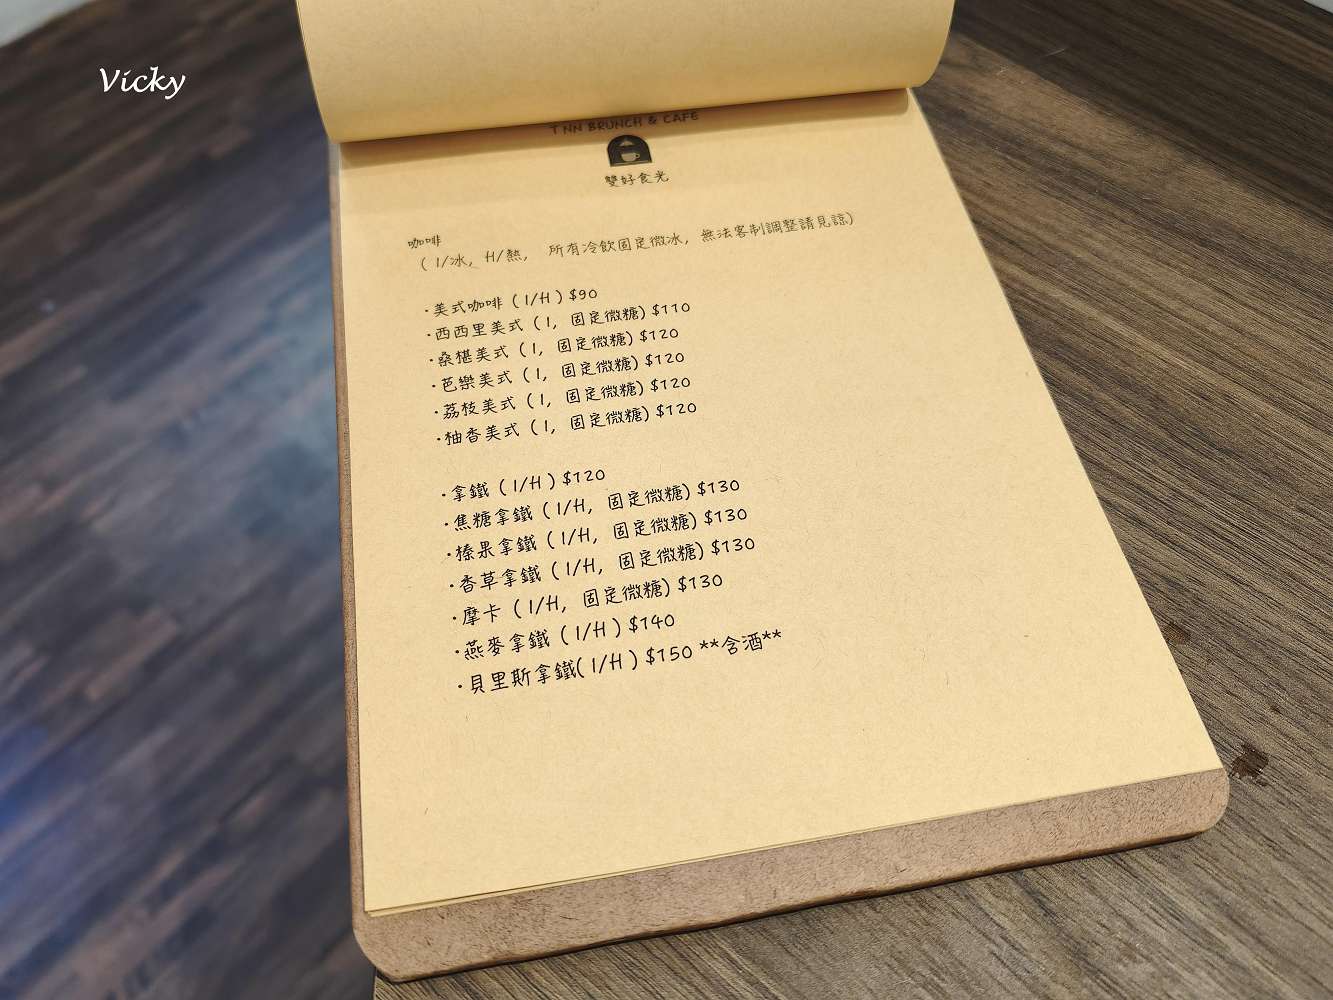 Vicky
T NN BRUNCH & CAFE
雙好食光
咖啡
( I/冰, H/熱, 所有冷飲固定微冰, 無法客制調整請見諒)
·美式咖啡 ( I/H ) $90
·西西里美式 ( I, 固定微糖) $110
·桑椹美式 ( I, 固定微糖) $120
·芭樂美式 ( I, 固定微糖) $120
·荔枝美式 ( I, 固定微糖) $120
·柚香美式 ( I, 固定微糖) $120
·拿鐵 ( I/H ) $120
·焦糖拿鐵 ( I/H, 固定微糖) $130
·榛果拿鐵 ( I/H, 固定微糖) $130
·香草拿鐵 ( I/H, 固定微糖) $130
·摩卡 ( I/H, 固定微糖) $130
·燕麥拿鐵 ( I/H ) $140
·貝里斯拿鐵( I/H ) $150 **含酒**